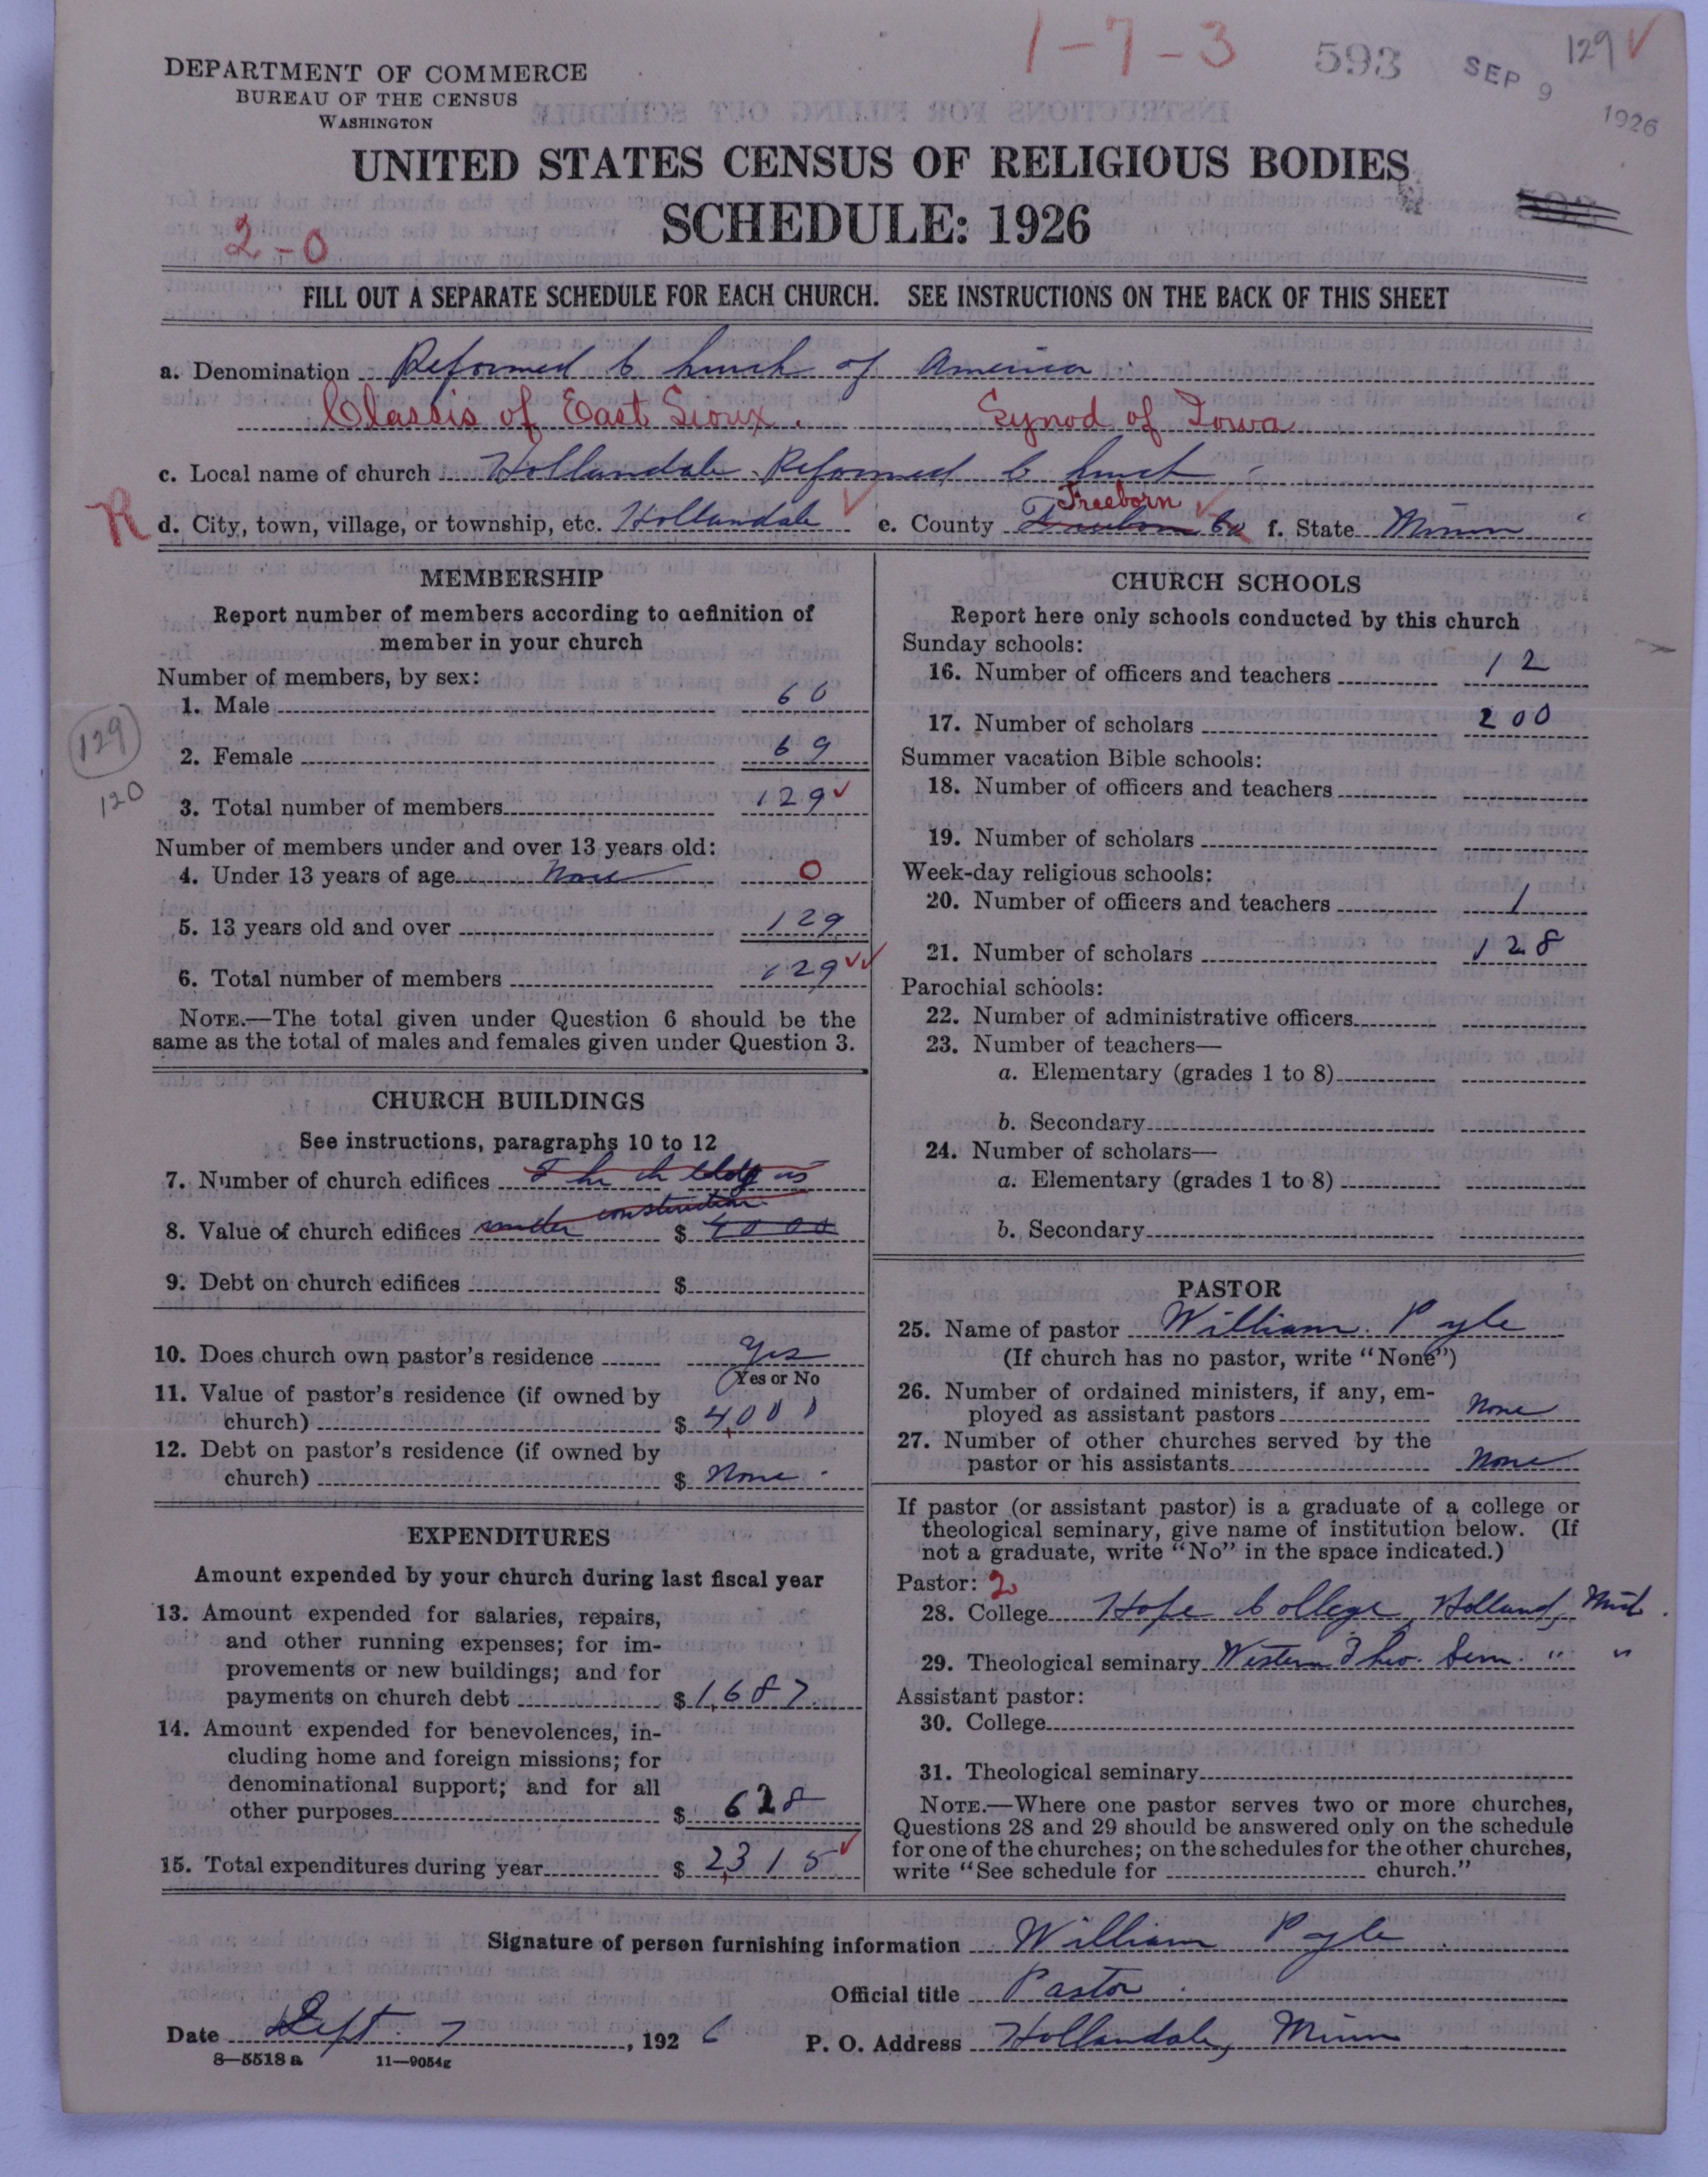 1-7-3 593 SEP 9 1926 129 ✓
DEPARTMENT OF COMMERCE
BUREAU OF THE CENSUS
WASHINGTON
UNITED STATES CENSUS OF RELIGIOUS BODIES
SCHEDULE: 1926
2-0
FILL OUT A SEPARATE SCHEDULE FOR EACH CHURCH. SEE INSTRUCTIONS ON THE BACK OF THIS SHEET
a. Denomination Reformed Church of America
Classis of East Sioux. Synod of Iowa
c. Local name of church Hollandale Reformed Church
R d. City, town, village, or township, etc. Hollandale ✓ e. County Freeborn Co Freeborn ✓ f. State Minn
MEMBERSHIP
Report number of members according to definition of
member in your church
Number of members, by sex:
1. Male 60
2. Female 69
129
120
3. Total number of members 129 ✓
Number of members under and over 13 years old:
4. Under 13 years of age None 0
5. 13 years old and over 129
6. Total number of members 129 ✓✓
NOTE.—The total given under Question 6 should be the
same as the total of males and females given under Question 3.
CHURCH BUILDINGS
See instructions, paragraphs 10 to 12
7. Number of church edifices The ch bldg is
8. Value of church edifices under construction $ 4000
9. Debt on church edifices $
10. Does church own pastor's residence Yes
Yes or No
11. Value of pastor's residence (if owned by
church) $ 4,000
12. Debt on pastor's residence (if owned by
church) $ None
EXPENDITURES
Amount expended by your church during last fiscal year
13. Amount expended for salaries, repairs,
and other running expenses; for im-
provements or new buildings; and for
payments on church debt $ 1,687.
14. Amount expended for benevolences, in-
cluding home and foreign missions; for
denominational support; and for all
other purposes $ 628
15. Total expenditures during year $ 2,315 ✓
CHURCH SCHOOLS
Report here only schools conducted by this church
Sunday schools:
16. Number of officers and teachers 12
17. Number of scholars 200
Summer vacation Bible schools:
18. Number of officers and teachers
19. Number of scholars
Week-day religious schools:
20. Number of officers and teachers 1
21. Number of scholars 128
Parochial schools:
22. Number of administrative officers
23. Number of teachers—
a. Elementary (grades 1 to 8)
b. Secondary
24. Number of scholars—
a. Elementary (grades 1 to 8)
b. Secondary
PASTOR
25. Name of pastor William Pyle
(If church has no pastor, write "None")
26. Number of ordained ministers, if any, em-
ployed as assistant pastors None
27. Number of other churches served by the
pastor or his assistants None
If pastor (or assistant pastor) is a graduate of a college or
theological seminary, give name of institution below. (If
not a graduate, write "No" in the space indicated.)
Pastor: 2
28. College Hope College, Holland, Mich.
29. Theological seminary Western Theo. Sem. " "
Assistant pastor:
30. College
31. Theological seminary
NOTE.—Where one pastor serves two or more churches,
Questions 28 and 29 should be answered only on the schedule
for one of the churches; on the schedules for the other churches,
write "See schedule for church."
Signature of person furnishing information William Pyle
Official title Pastor
Date Sept. 7, 1926 P. O. Address Hollandale, Minn
8—5518 a 11—9054g